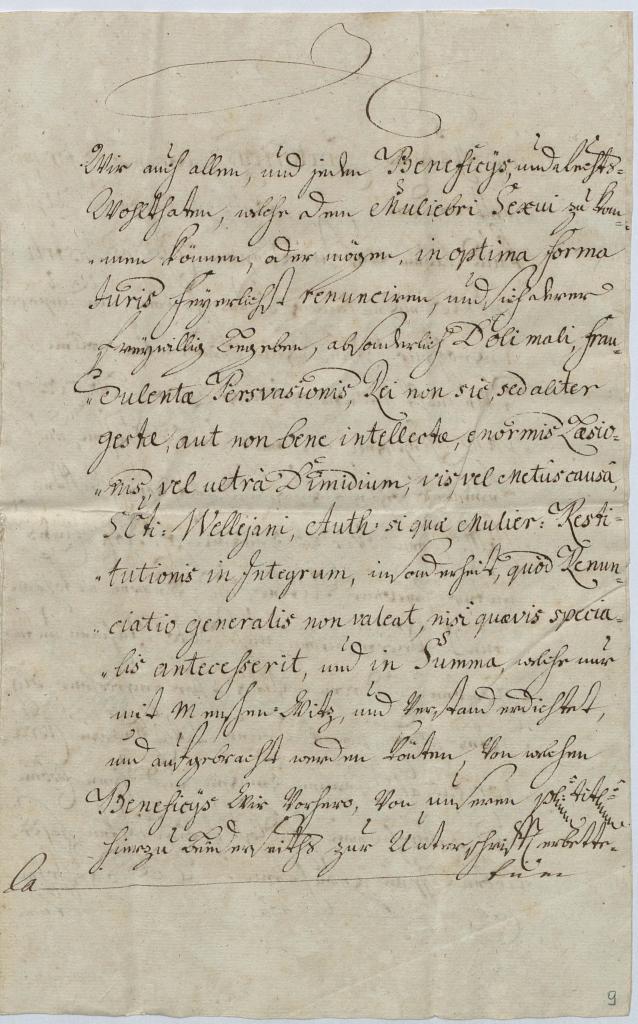 Wir auch allen, und jeden Beneficÿs, und Rechts-
Wohlthaten, welche dem Muliebri Sexui zu kom-
-men können, oder mögen, in optima forma
Juris feÿerlichst renunciren, und sich derer
freÿwillig begeben, absonderlich Doli mali, frau-
-dulentæ Persvasionis, Rei non sic, sed aliter
gestæ, aut non bene intellectæ, enormis Læsio-
-nis, vel ultrà Dimidium, vis, vel Metus causâ,
SCti: Wellejani, Auth: si qua Mulier: Resti-
-tutionis in Integrum, in sonderheit, quòd Renun-
-ciatio generalis non valeat, nisi quævis specia-
-lis antecesserit, und in Summa, welche nur
mit Menschen-Witz, und Verstand erdichtet,
und aufgebracht werden könten, Von welchen
Beneficÿs Wir Vorhero, Von unseren
hierzu beederseiths zur Unterschrifft erbette-